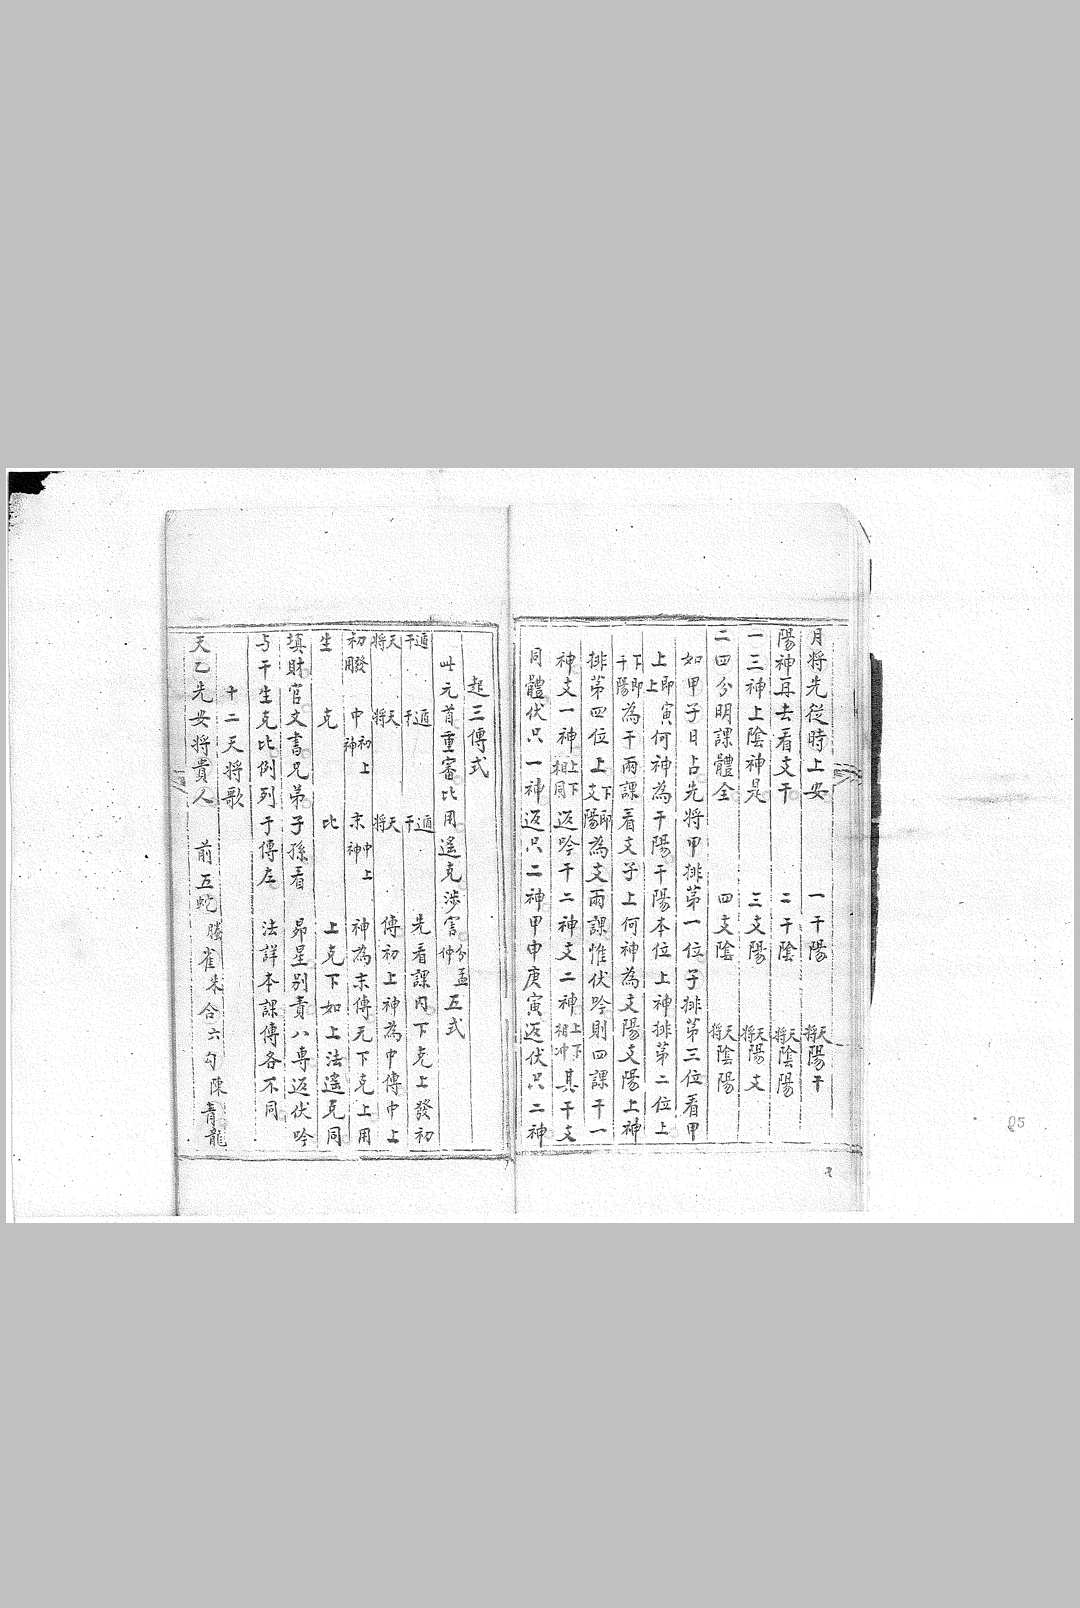 月将先從時上安　　一干陽　天将陽干
陽神再去看支干　　二干陰　天将陰陽
一三神上陰神是　　三支陽　天将陽支
二四分明課體全　　四支陰　天将陰陽
如甲子日占先将甲排第一位子排第三位看甲
上即寅上何神為干陽干陽本位上神排第二位上
下即干陽為干兩課看支子上何神為支陽支陽上神
排第四位上下即支陽為支兩課惟伏吟則四課干一
神支一神上下相同返吟干二神支二神上下相冲其干支
同體伏只一神返只二神甲申庚寅返伏只二神
起三傳式
元首重審比用遙克涉害分孟仲五式
遁干　遁干　遁干　先看課内下克上發初
天将　天将　天将　傳初上神為中傳中上
初發用　中神初上　末神中上　神為末傳无下克上用
生　克　比　上克下如上法遙克同
填財官文書兄弟子孫看　昴星別責八專返伏吟
与干生克比例列于傳左　法詳本課傳各不同
十二天将歌
天乙先安将貴人　前五蛇螣雀朱合六勾陳青龍
85